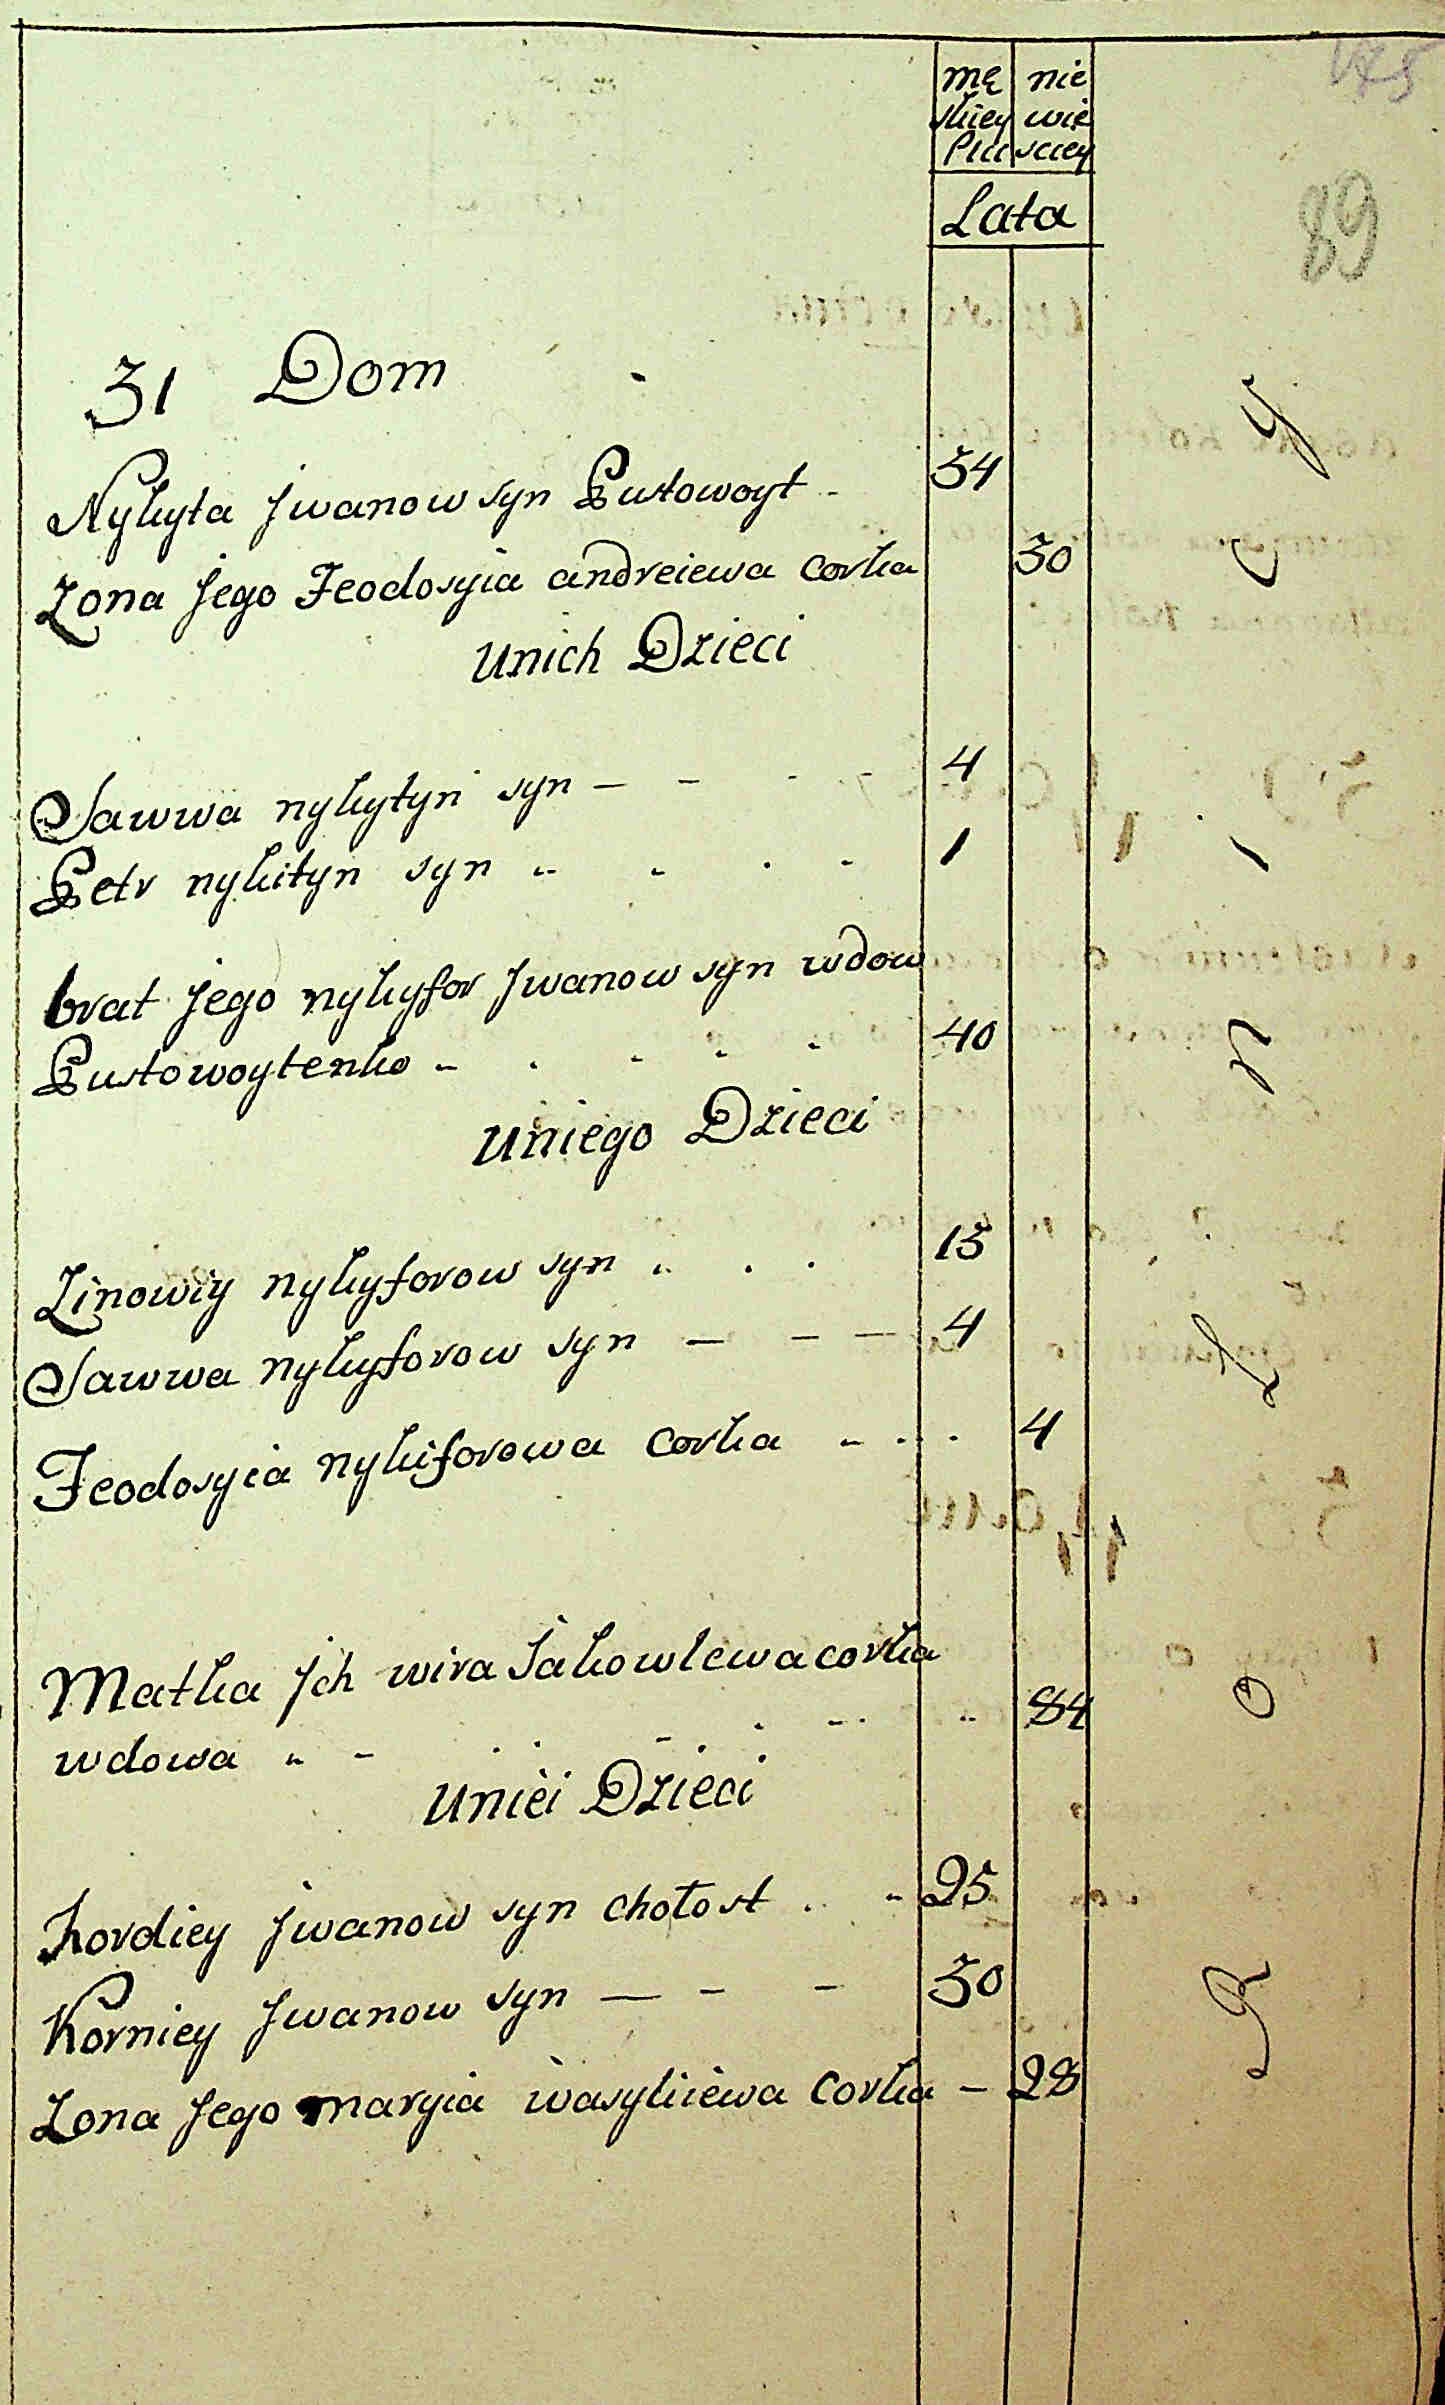 mę nie
skiey wie
Płci sciey
Lata
89
31 Dom
Nykyta Jwanow syn Pustowoyt - 34
Zona Jego Feodosyia andreiewa corka 30
Unich Dzieci
Sawwa nykytyn syn — - - - 4
Petr nykityn syn - - - - 1
brat Jego nykyfor Jwanow syn wdow
Pustowoytenko - - - - - 40
Uniego Dzieci
Zinowiy nykyforow syn - - - 15
Sawwa nykyforow syn — - — 4
Feodosyia nykiforowa corka - - - 4
Matka Jch wira Jakowlewa corka
wdowa - - - - - - - - 84
Uniei Dzieci
Kordiey Jwanow syn chołost - - 25
Korniey Jwanow syn — - - 30
Zona Jego maryia wasyliiewa corka - 28